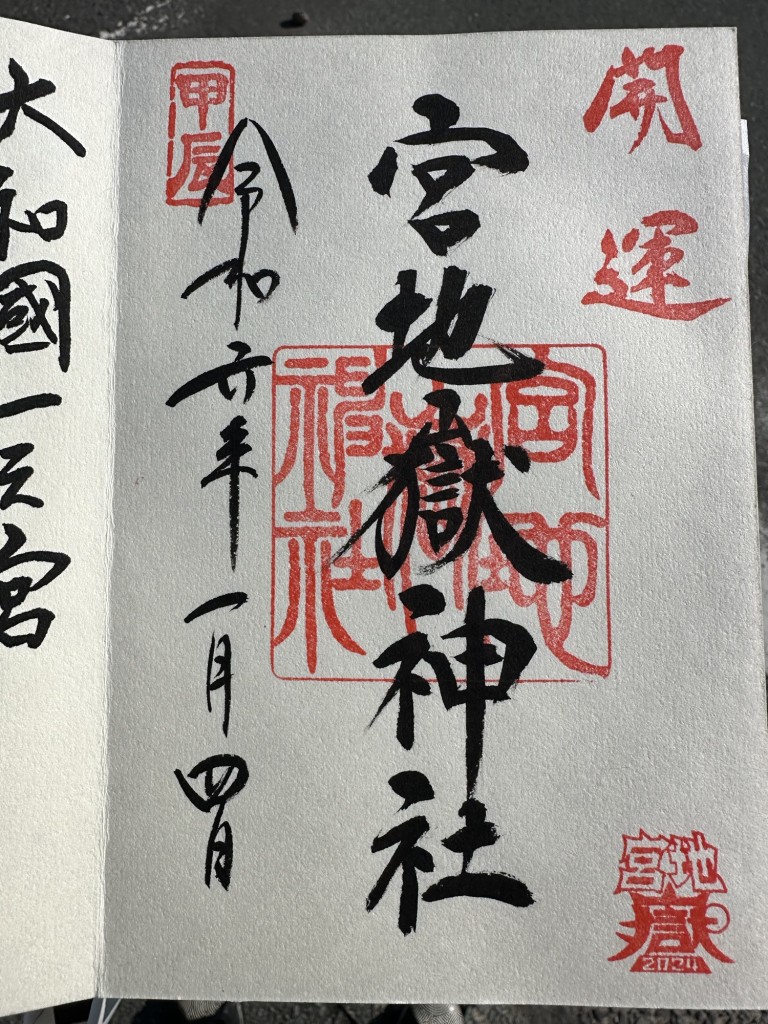 開運
宮地嶽神社
宮地嶽神社
甲辰
令和六年一月四日
宮地
嶽
2024
大和國一之宮